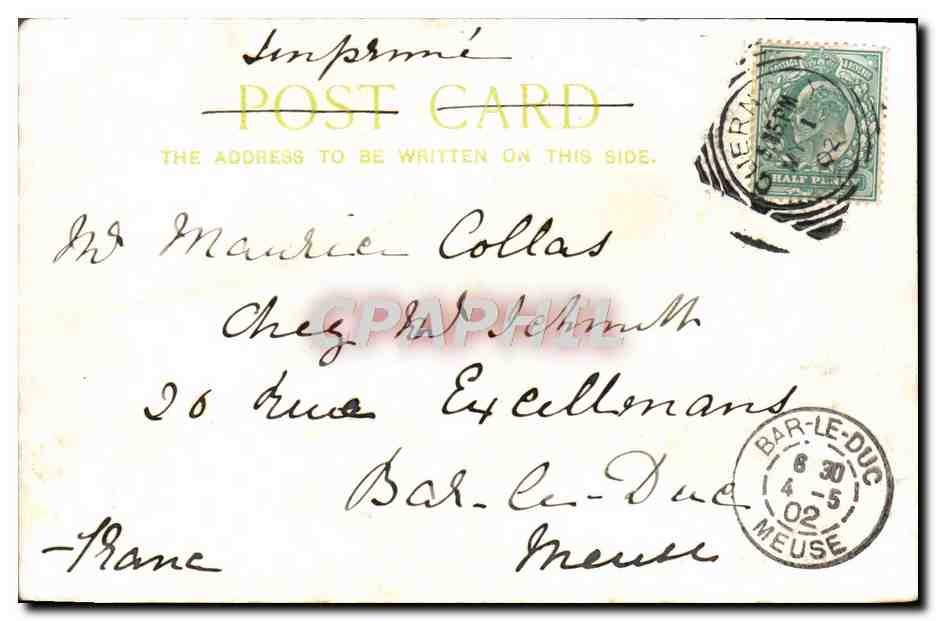 Imprimé
POST CARD
THE ADDRESS TO BE WRITTEN ON THIS SIDE.
POSTAGE REVENUE
HALF PENNY
GUERN
5.45PM
1
02
Mr Maurice Collas
Chez Mr Schmitt
20 Rue Excellmans
Bar-le-Duc
Meuse
France
BAR-LE-DUC
6 30
4 -5
02
MEUSE
CPAPHIL